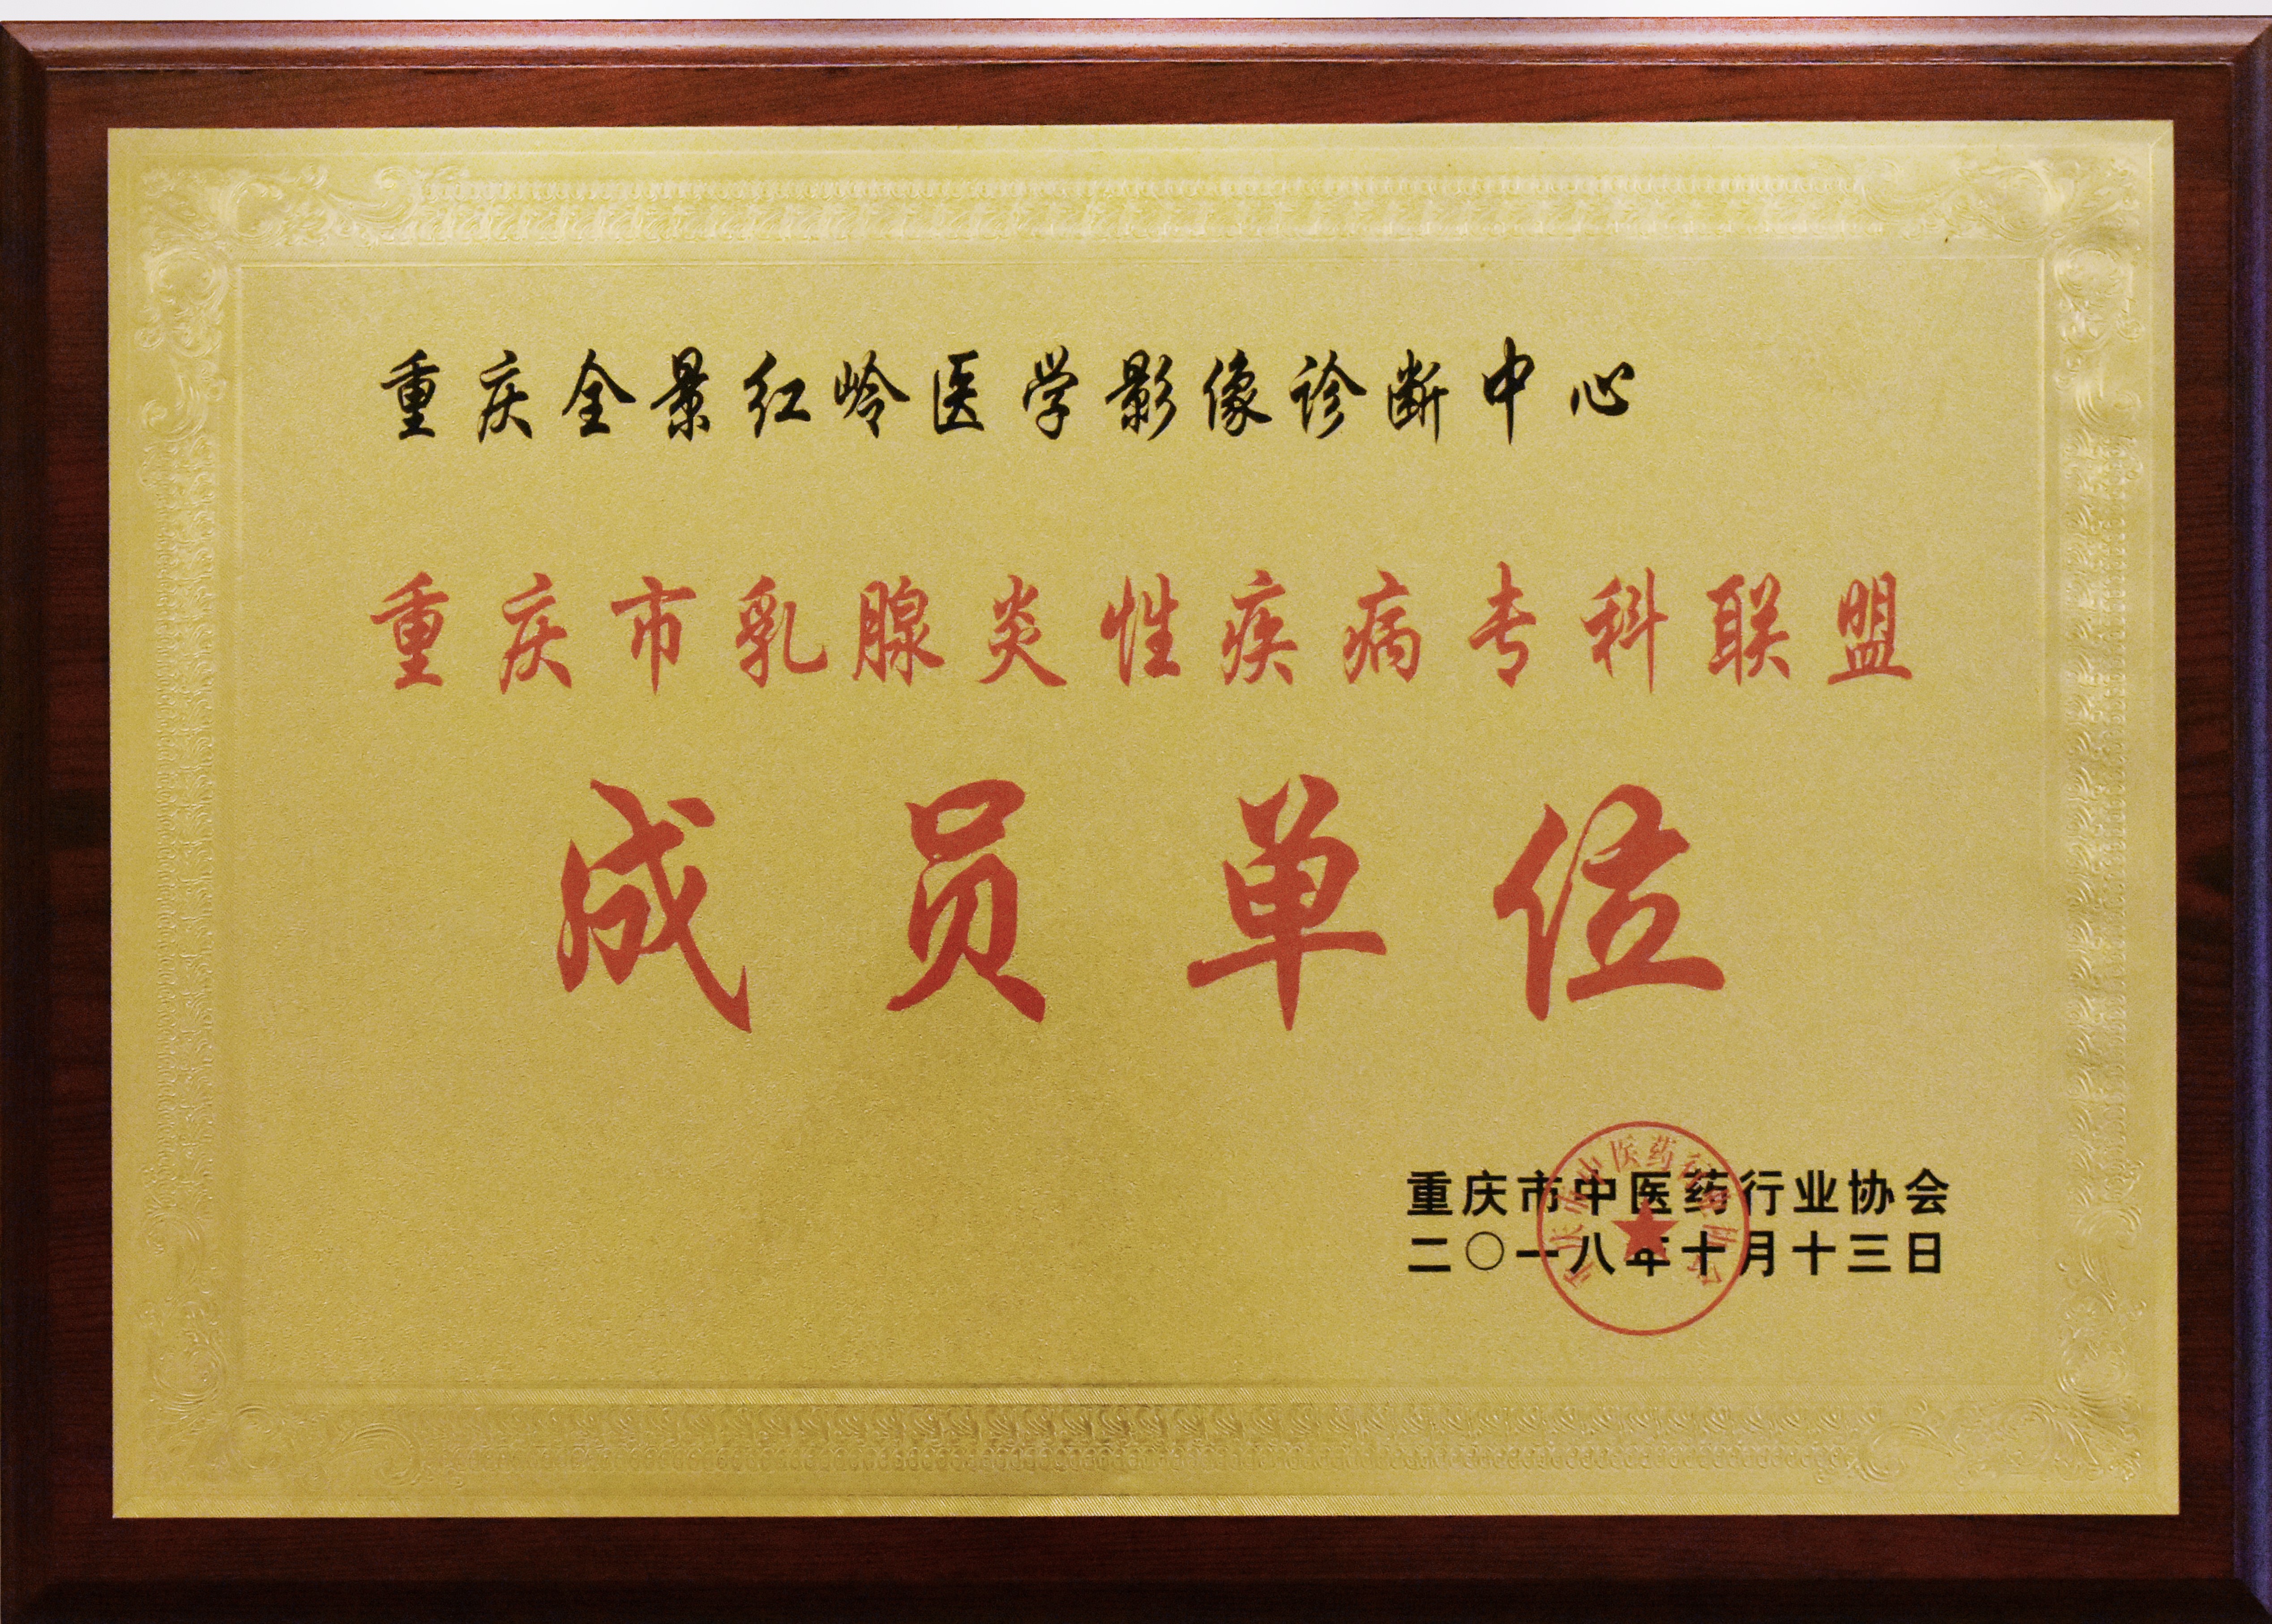 重庆全景红岭医学影像诊断中心
重庆市乳腺炎性疾病专科联盟
成员单位
重庆市中医药行业协会
二〇一八年十月十三日
重庆市中医药行业协会